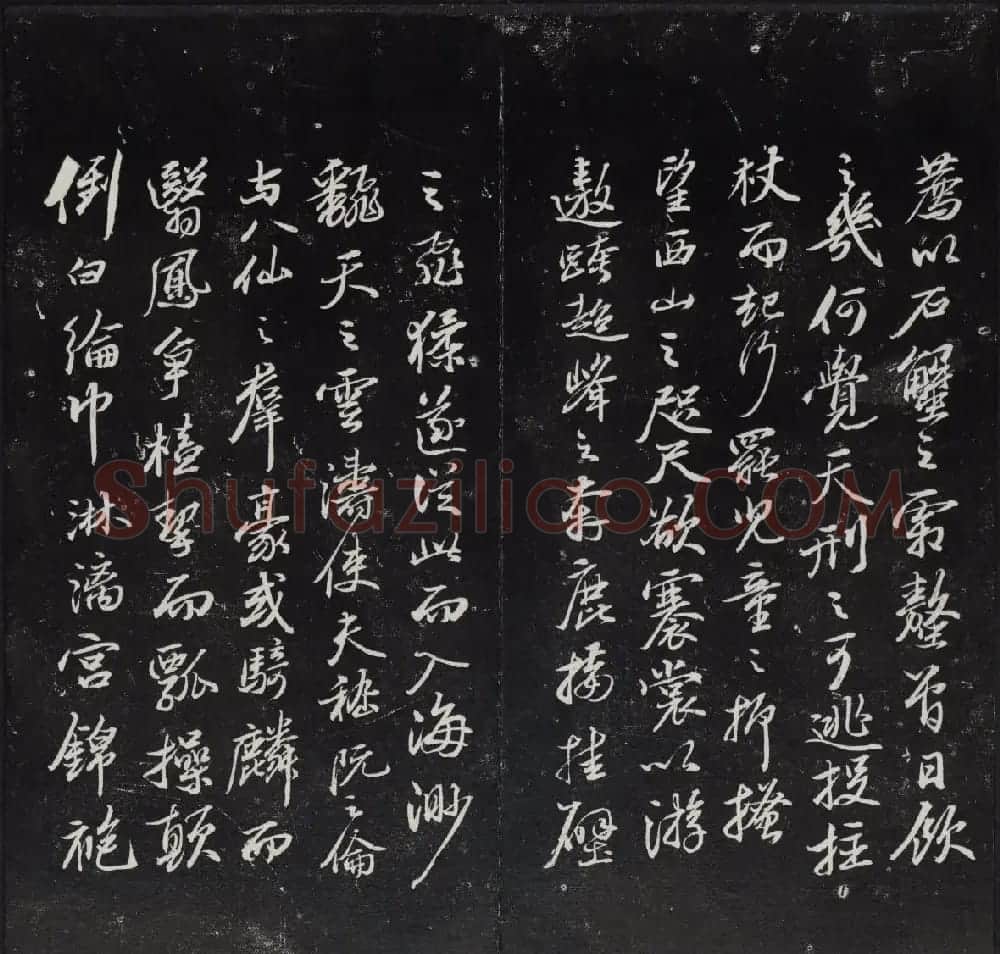 薦以石蟹之霜螯曾日飲
之幾何覺天刑之可逃投拄
杖而起行罷兒童之抑搔
望西山之咫尺欲褰裳以游
遨跨超峰之奔鹿接挂壁
之飛猱遂從此而入海渺
翻天之雲濤使夫嵇阮之倫
与八仙之羣豪或騎麟而
翳鳳爭榼挈而瓢操顛
倒白綸巾淋漓宮錦袍
Shufaziliao.COM